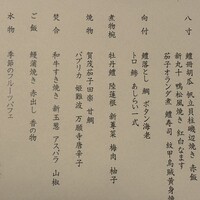 八寸
鱧押胡瓜 帆立貝柱磯辺焼き 赤飯
新丸十 鴨松風焼き 紅白なます
茄子オランダ煮 鱧寿司 紋甲烏賊黄身焼
向付
鱧落とし 鯛 ボタン海老
トロ 鮪 あしらい一式
煮物椀
牡丹鱧 陸蓮根 新蓴菜 梅肉 柚子
焼物
賀茂茄子田楽 甘鯛
パプリカ 姫難波 万願寺唐辛子
焚合
和牛すき焼き 新玉葱 アスパラ 山椒
ご飯
鰻蒲焼き 赤出し 香の物
水物
季節のフルーツパフェ